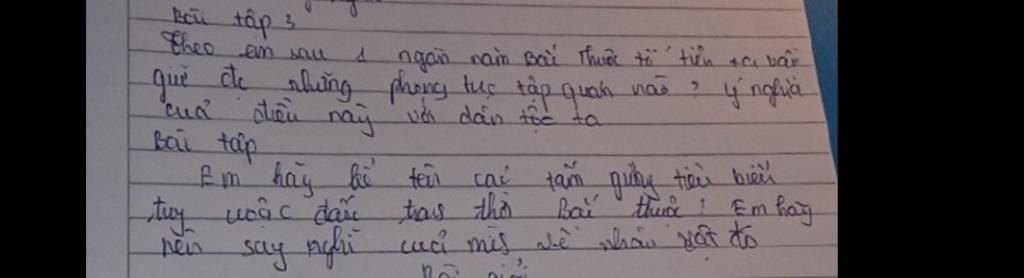 Bài tập 3
Theo em sau 1 ngàn năm Bắc thuộc tổ tiên ta vẫn
giữ đc những phong tục tập quán nào? ý nghĩa
của điều này với dân tộc ta
Bài tập
Em hãy kể tên các tấm gương tiêu biểu
thời Bắc thuộc? Em hãy
nên suy nghĩ của mìs về nhân vật đó